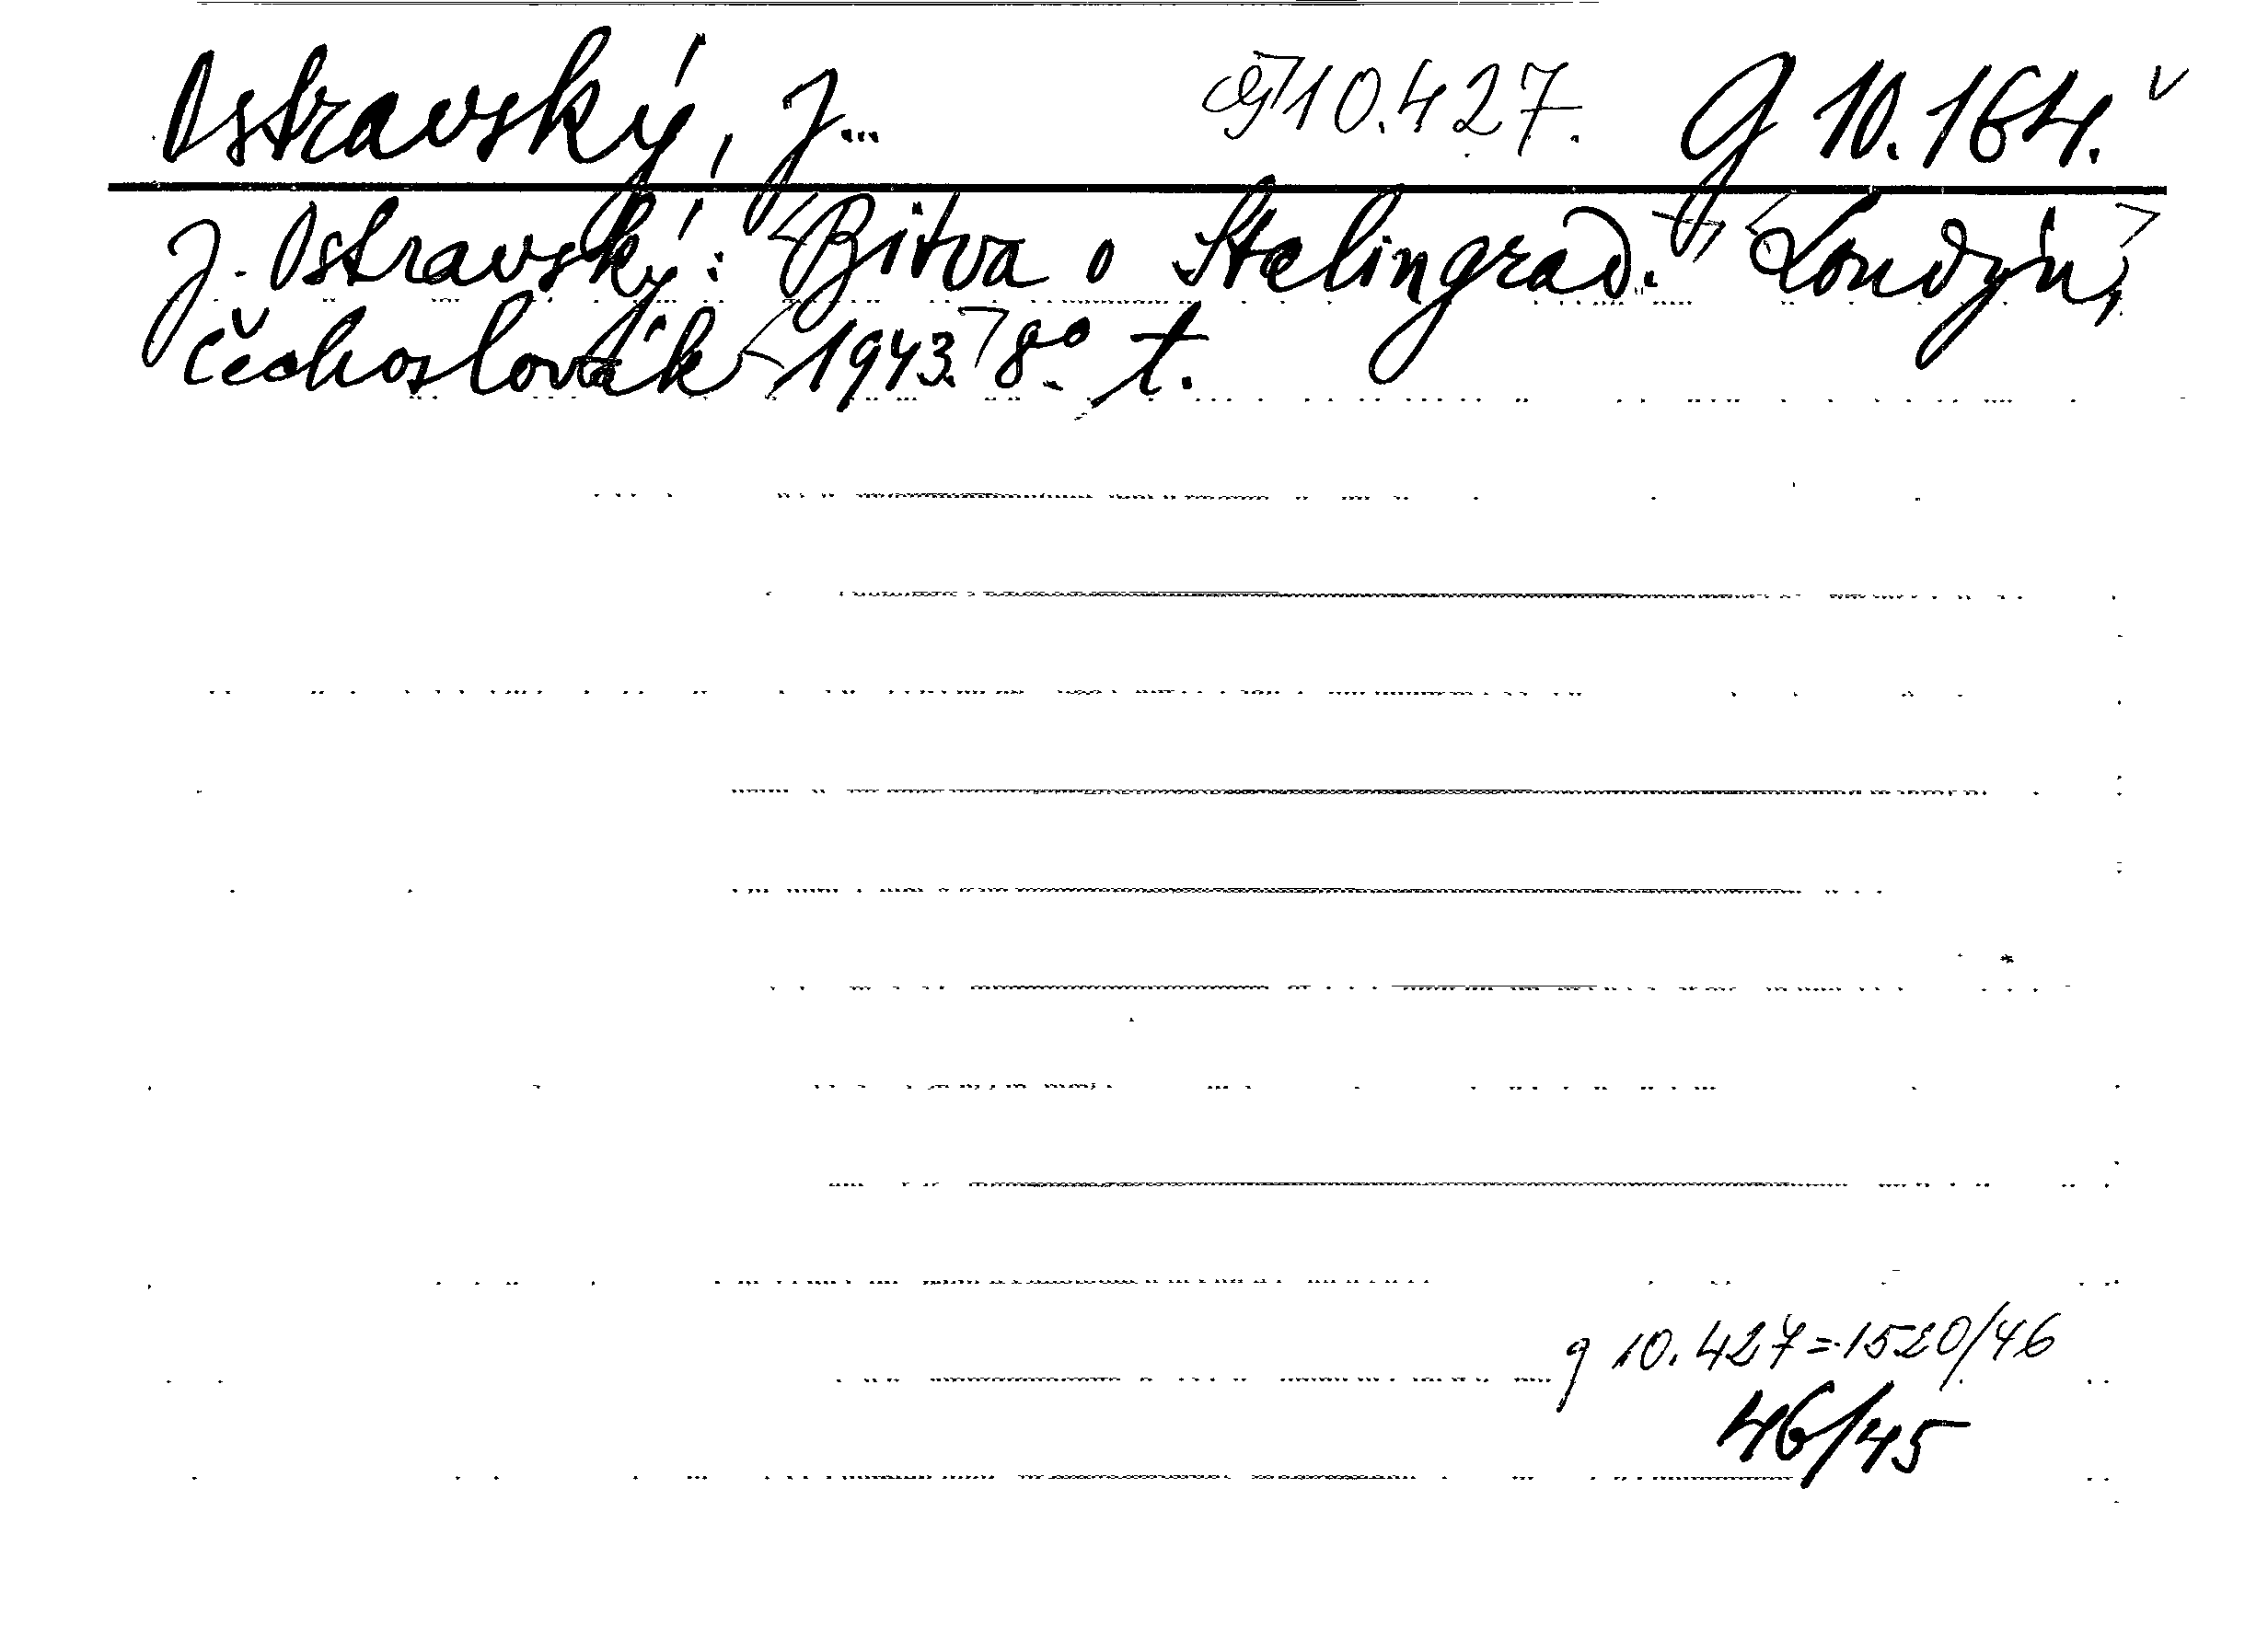 Ostravský, J... g 10.427. g 10.164.
J. Ostravský: Bitva o Stalingrad. Londýn,
Čechoslovák 1943. 8°. t.
g 10.427=1520/46
46/45